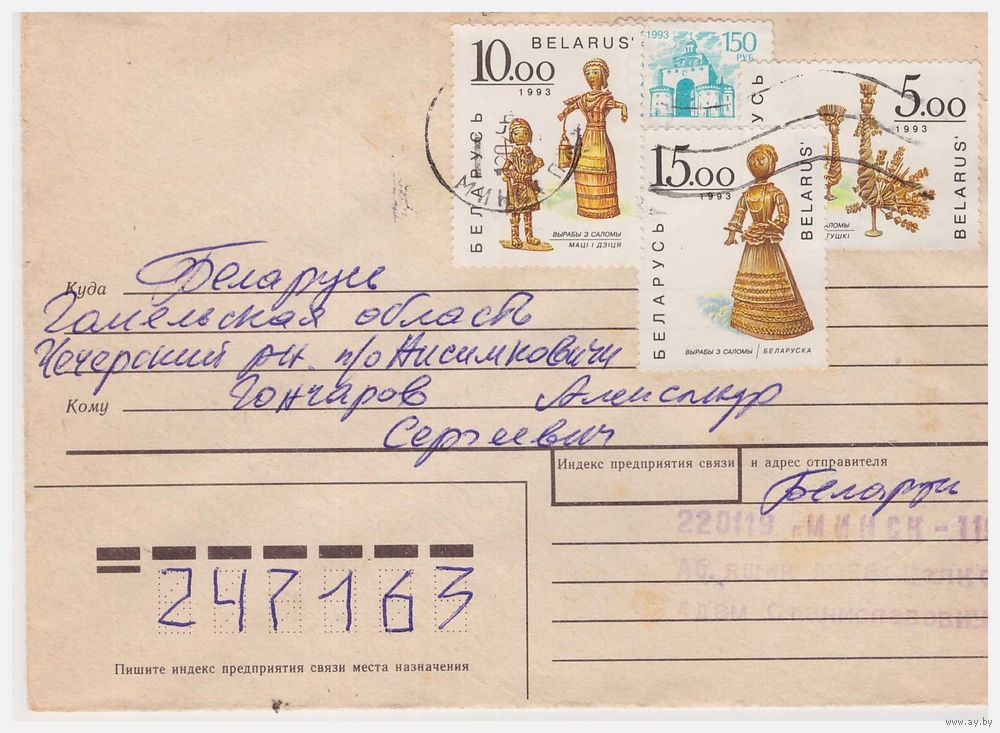 10.00
1993
BELARUS'
БЕЛАРУСЬ
ВЫРАБЫ З САЛОМЫ
МАЦІ І ДЗІЦЯ
1993
150
РУБ
5.00
1993
BELARUS'
УСЬ
ЛОМЫ
ТУШКІ
15.00
1993
BELARUS'
БЕЛАРУСЬ
ВЫРАБЫ З САЛОМЫ / БЕЛАРУСКА
Куда Беларусь
Гомельская область
Чечерский рн. п/о Нисимковичи
Кому Гончаров Александр
Сергеевич
Индекс предприятия связи и адрес отправителя
Беларусь
220119 г. МИНСК-11
247163
Пишите индекс предприятия связи места назначения
www.ay.by